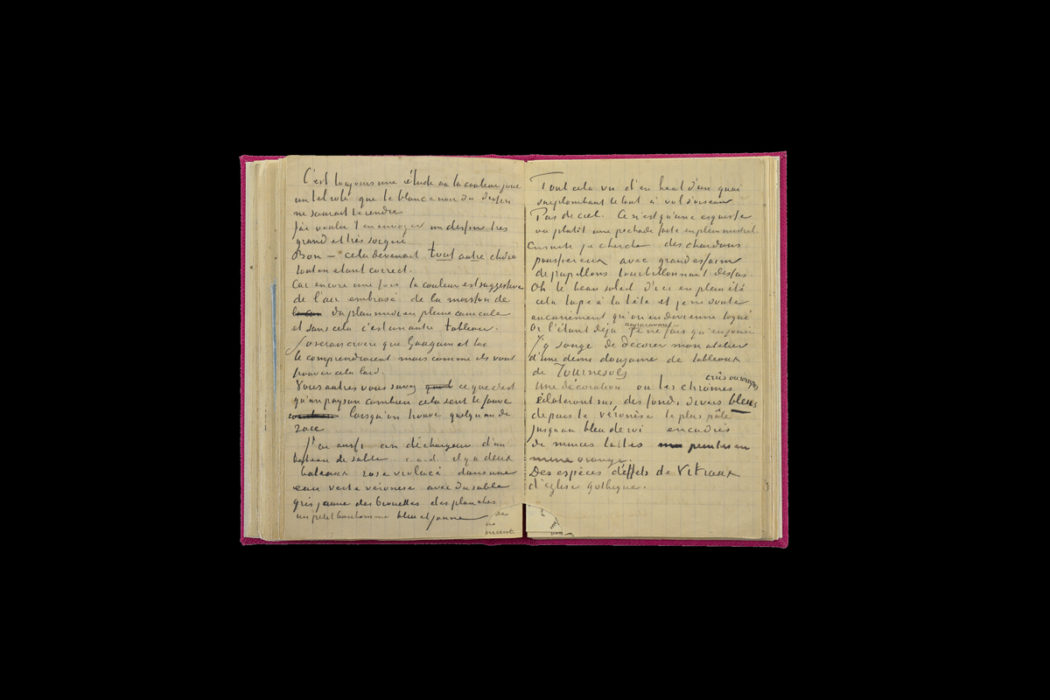 C'est toujours une étude ou la couleur joue
un tel role que le blanc et noir du dessin
ne saurait le rendre
J'ai voulu t'en envoyer un dessin très
grand et très soigné
Bon — cela devenait tout autre chose
tout en etant correct.
Car encore une fois la couleur est suggestive
de l'air embrasé de la moisson de
du plein midi en pleine canicule
et sans cela c'est un autre tableau.
J'oserais croire que Gauguin et toi
le comprendraient mais comme ils vont
trouver cela laid.
Vous autres vous savez ce que c'est
qu'un paysan combien cela sent le fauve
lorsqu'on trouve quelqu'un de
race
J'ai aussi un déchargeur d'un
bateau de sable c.a.d. il y a deux
bateaux rose violacé dans une
eau verte véronèse avec du sable
gris jaune des brouettes des planches
un petit bonhomme bleu et jaune
Tout cela vu d'en haut d'un quai
surplombant le tout à vol d'oiseau
Pas de ciel. Ce n'est qu'une esquisse
ou plutôt une pochade faite en plein mistral
Ensuite je cherche des chardons
poussiereux avec grand essaim
de papillons tourbillonnant dessus
Oh le beau soleil d'ici en plein été
cela tape à la tête et je ne doute
aucunement qu'on en devienne toqué
Or l'étant déja auparavant je ne fais qu'en jouir
J'y songe de décorer mon atelier
d'une demi douzaine de tableaux
de Tournesols
Une décoration ou les chromes crûs ou rompus
éclateront sur des fonds divers bleus
depuis le véronèse le plus pâle
jusqu'au bleu de roi encadrés
de minces lattes peintes en
mine orange.
Des espèces d'effets de Vitraux
d'église gothique.